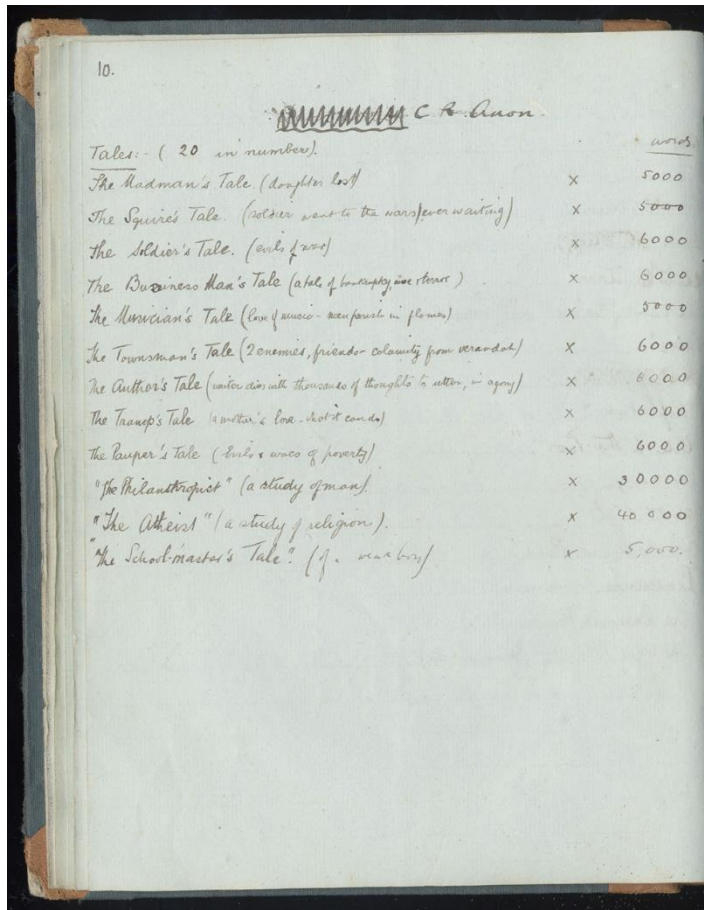 10.
C R. Anon.
Tales:- (20 in number).
words
The Madman's Tale. (daughter lost) x 5000
The Squire's Tale. (soldier went to the wars/ever waiting) x 5000
The Soldier's Tale. (evils of war) x 6000
The Business Man's Tale (a tale of bankruptcy, woe & terror) x 6000
The Musician's Tale (love of music - man perish in flames) x 5000
The Townsman's Tale (2 enemies, friends - calamity from verandah) x 6000
The Author's Tale (writer dies with thousands of thoughts to utter, in agony) x 6000
The Tramp's Tale (a mother's love - what it can do) x 6000
The Pauper's Tale (Evils & woes of poverty) x 6000
"The Philanthropist" (a study of man). x 30000
"The Atheist" (a study of religion). x 40000
"The School-master's Tale". (of a weak boy) x 5,000.